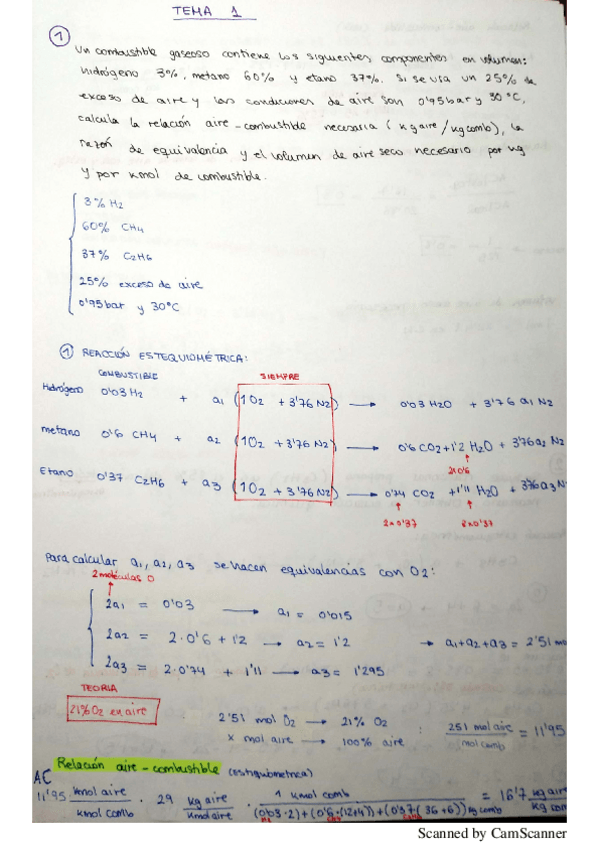 TEMA 1
1
Un combustible gaseoso contiene los siguientes componentes en volumen:
hidrógeno 3%, metano 60% y etano 37%. Si se usa un 25% de
exceso de aire y las condiciones de aire son 0'95 bar y 30°C,
calcula la relación aire-combustible necesaria (kg aire/kg comb), la
razón de equivalencia y el volumen de aire seco necesario por kg
y por kmol de combustible.
3% H2
60% CH4
37% C2H6
25% exceso de aire
0'95 bar y 30°C
1 REACCIÓN ESTEQUIOMÉTRICA:
COMBUSTIBLE SIEMPRE
Hidrógeno 0'03 H2 + a1 (1O2 + 3'76 N2) → 0'03 H2O + 3'76 a1 N2
metano 0'6 CH4 + a2 (1O2 + 3'76 N2) → 0'6 CO2 + 1'2 H2O + 3'76 a2 N2
2x0'6
Etano 0'37 C2H6 + a3 (1O2 + 3'76 N2) → 0'74 CO2 + 1'11 H2O + 3'76 a3 N
2x0'37 3x0'37
Para calcular a1, a2, a3 se hacen equivalencias con O2:
2 moléculas O
2a1 = 0'03 → a1 = 0'015
2a2 = 2·0'6 + 1'2 → a2 = 1'2 → a1+a2+a3 = 2'51 mol
2a3 = 2·0'74 + 1'11 → a3 = 1'295
TEORIA
21% O2 en aire
2'51 mol O2 → 21% O2
x mol aire → 100% aire : 251 mol aire / mol comb = 11'95
Relación aire-combustible (estequiométrica)
AC
11'95 kmol aire / kmol comb · 29 kg aire / kmol aire · 1 kmol comb / (0'03·2)+(0'6·(12+4))+(0'37(36+6)) kg comb = 16'7 kg aire / kg com
Scanned by CamScanner